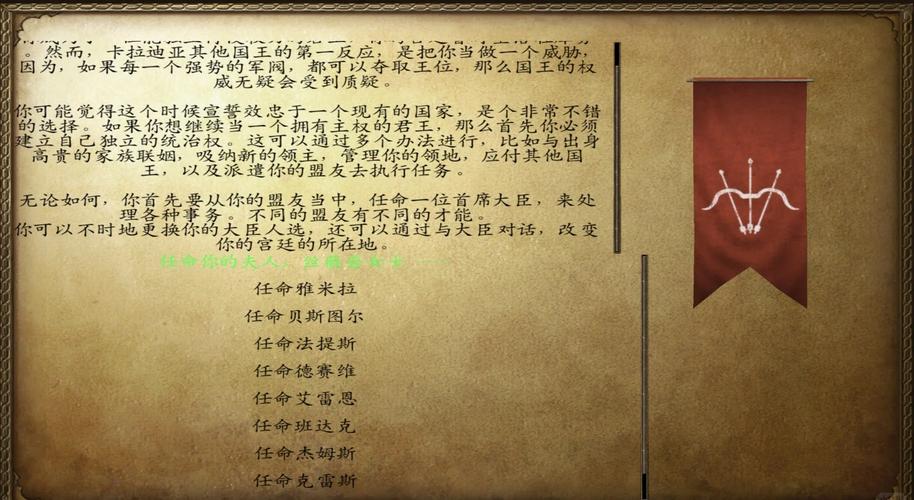 。然而，卡拉迪亚其他国王的第一反应，是把你当做一个威胁，
因为，如果每一个强势的军阀，都可以夺取王位，那么国王的权
威无疑会受到质疑。
你可能觉得这个时候宣誓效忠于一个现有的国家，是个非常不错
的选择。如果你想继续当一个拥有主权的君王，那么首先你必须
建立自己独立的统治权。这可以通过多个办法进行，比如与出身
高贵的家族联姻，吸纳新的领主，管理你的领地，应付其他国
王，以及派遣你的盟友去执行任务。
无论如何，你首先要从你的盟友当中，任命一位首席大臣，来处
理各种事务。不同的盟友有不同的才能。
你可以不时地更换你的大臣人选，还可以通过与大臣对话，改变
你的宫廷的所在地。
任命你的夫人，
任命雅米拉
任命贝斯图尔
任命法提斯
任命德赛维
任命艾雷恩
任命班达克
任命杰姆斯
任命克雷斯